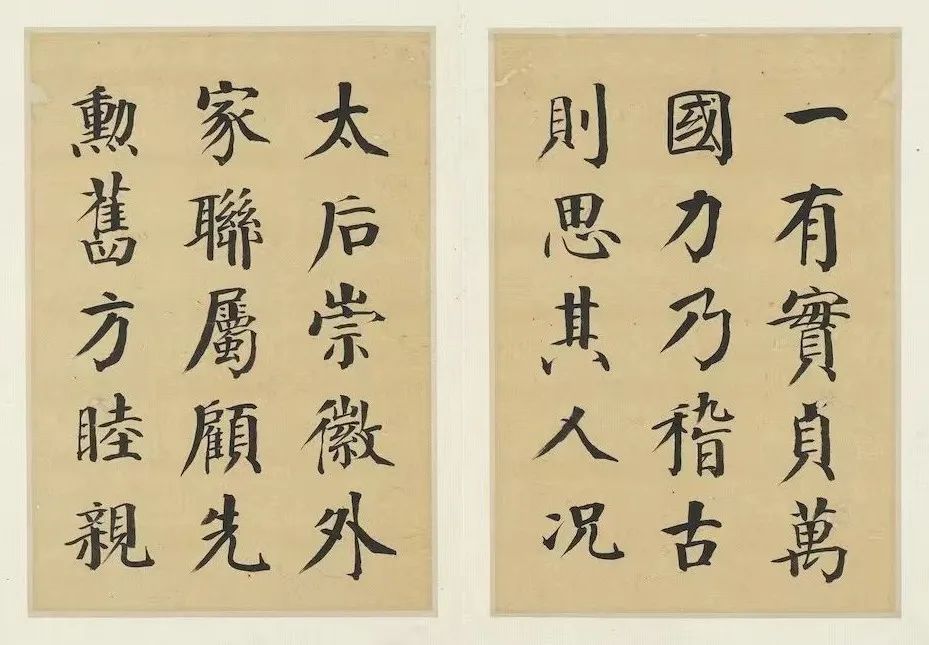 一有實貞萬
國力乃稽古
則思其人況
太后崇徽外
家聯屬顧先
勲舊方睦親